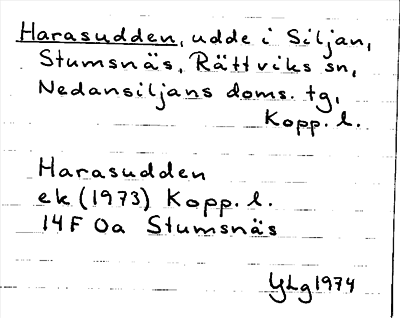 Harasudden, udde i Siljan,
Stumsnäs, Rättviks sn,
Nedansiljans doms. tg,
Kopp. l.
Harasudden
ek (1973) Kopp. l.
14F 0a Stumsnäs
YLg 1974